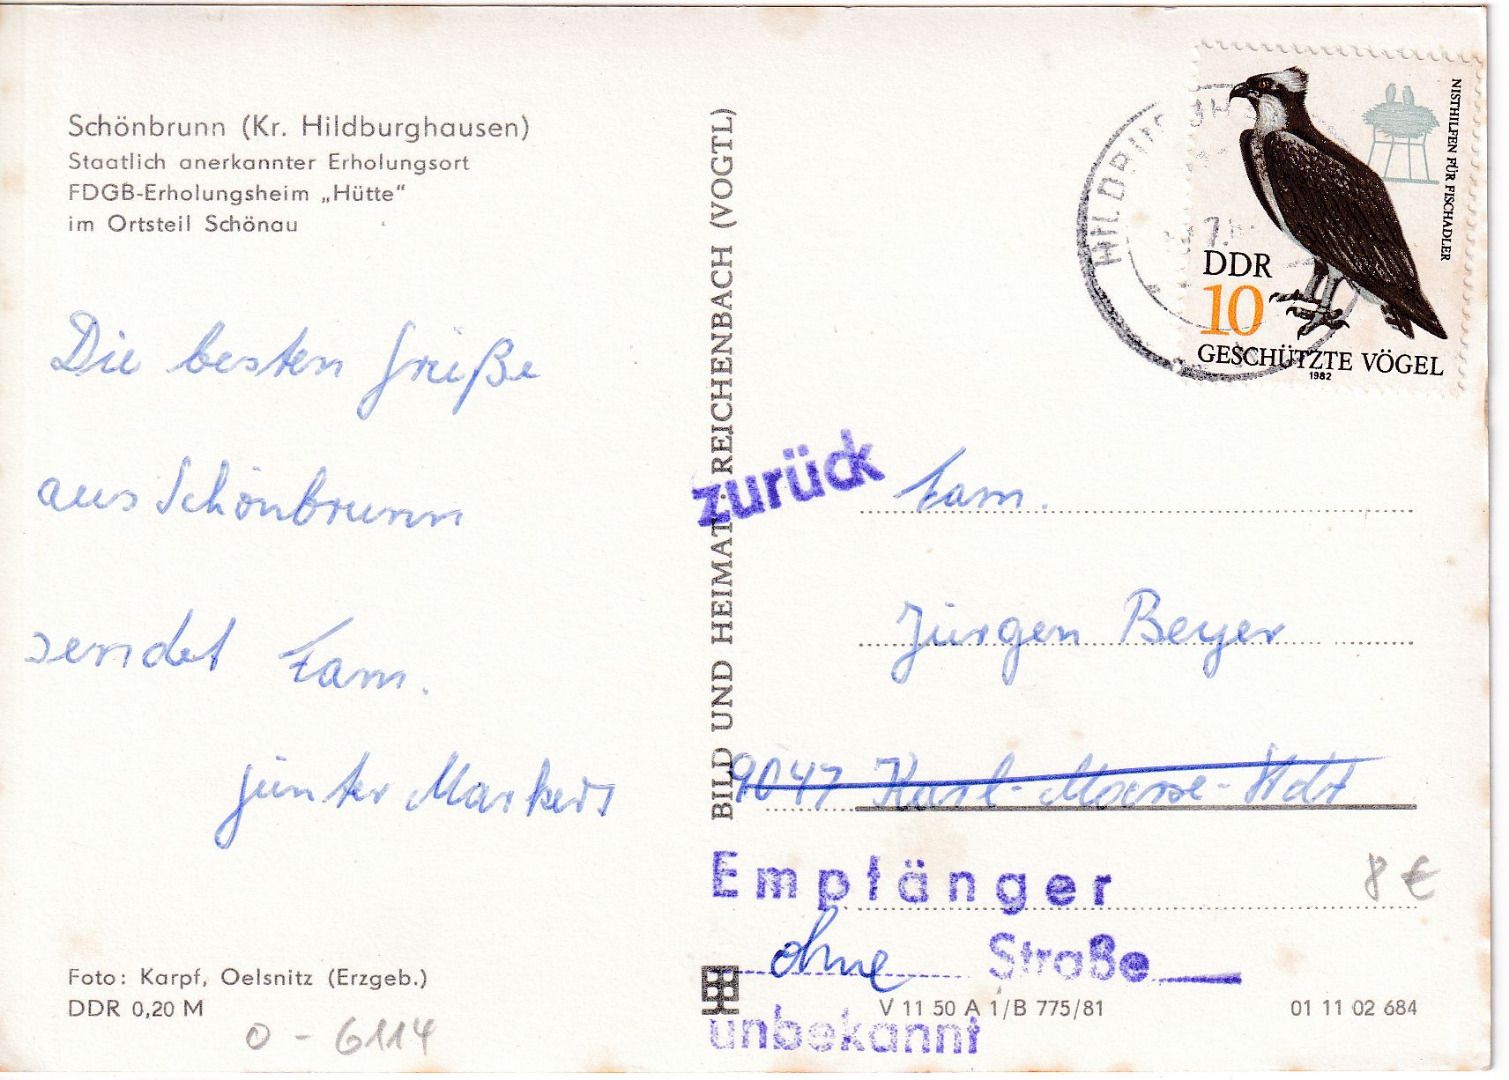 Schönbrunn (Kr. Hildburghausen)
Staatlich anerkannter Erholungsort
FDGB-Erholungsheim „Hütte“
im Ortsteil Schönau
Die besten Grüße
aus Schönbrunn
sendet Fam.
Günter Markers
Foto: Karpf, Oelsnitz (Erzgeb.)
DDR 0,20 M
O - 6114
BILD UND HEIMAT · REICHENBACH (VOGTL)
NISTHILFEN FÜR FISCHADLER
DDR
10
GESCHÜTZTE VÖGEL
1982
zurück
Fam.
Jürgen Beyer
9047 Karl-Marx-Stdt
Empfänger
8 €
ohne Straße
unbekannt
V 11 50 A 1/B 775/81
01 11 02 684